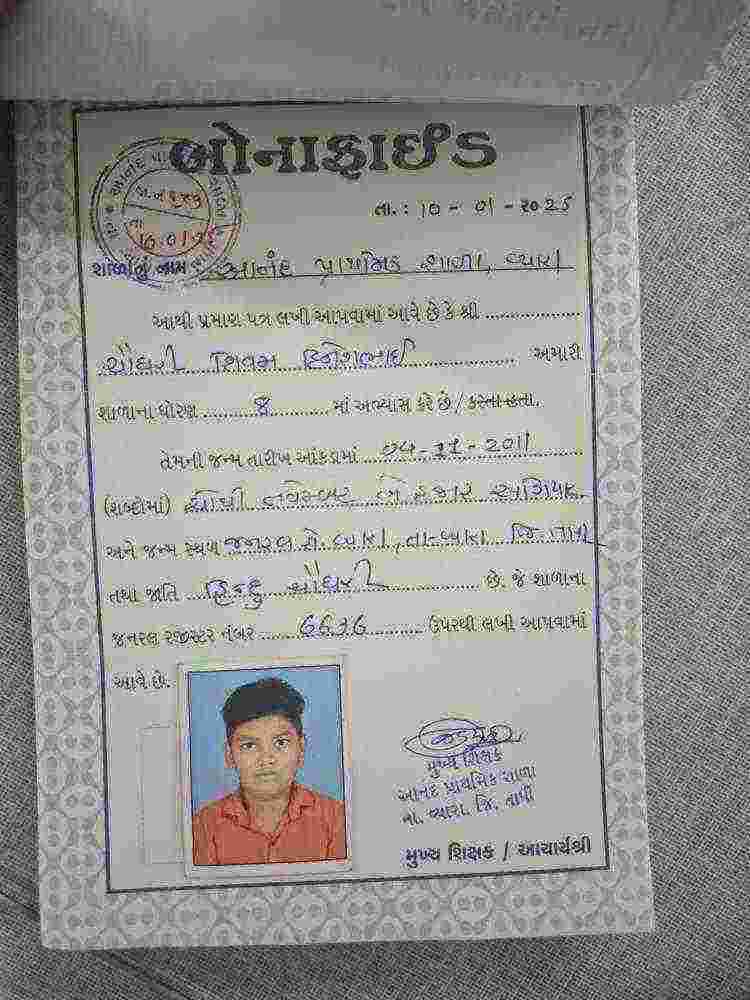 બોનાફાઈડ
તા. : 10 - 01 - 2025
શાળાનું નામ આનંદ પ્રાથમિક શાળા, વ્યારા
આથી પ્રમાણ પત્ર લખી આપવામાં આવે છે કે શ્રી
ચૌધરી શિવમ દિનેશભાઈ અમારી
શાળાના ધોરણ 8 માં અભ્યાસ કરે છે / કરતા હતા.
તેમની જન્મ તારીખ આંકડામાં 24-11-2011
(શબ્દોમાં) નવેમ્બર બે હજાર અગિયાર
અને જન્મ સ્થળ જનરલ હો. વ્યારા, તા-વ્યારા જિ. તાપી
તથા જાતિ હિન્દુ ચૌધરી છે. જે શાળાના
જનરલ રજીસ્ટર નંબર 6636 ઉપરથી લખી આપવામાં
આવે છે.
મુખ્ય શિક્ષક
આનંદ પ્રાથમિક શાળા
તા. વ્યારા, જિ. તાપી
મુખ્ય શિક્ષક / આચાર્યશ્રી